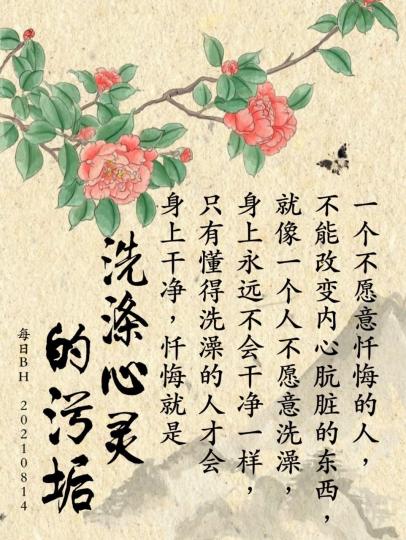 一个不愿意忏悔的人，
不能改变内心肮脏的东西，
就像一个人不愿意洗澡，
身上永远不会干净一样，
只有懂得洗澡的人才会
身上干净，忏悔就是
洗涤心灵
的污垢
每日BH 20210814